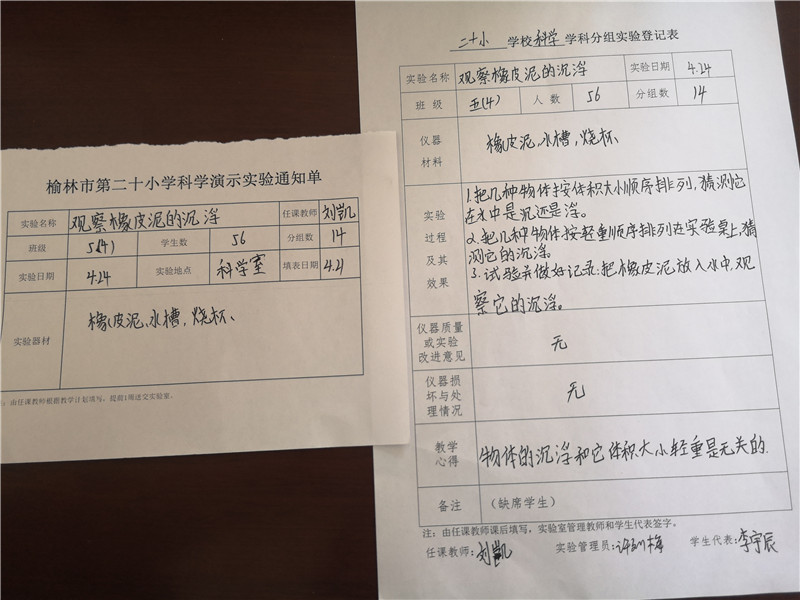 榆林市第二十小学科学演示实验通知单
实验名称 观察橡皮泥的沉浮 任课教师 刘凯
班级 5(4) 学生数 56 分组数 14
实验日期 4.24 实验地点 科学室 填表日期 4.21
实验器材 橡皮泥、水槽,烧杯、
:由任课教师根据教学计划填写,提前1周送交实验室。
二十小 学校 科学 学科分组实验登记表
实验名称 观察橡皮泥的沉浮 实验日期 4.24
班级 五(4) 人数 56 分组数 14
仪器
材料
橡皮泥、水槽,烧杯、
实验
过程
及其
效果
1.把几种物体按体积大小顺序排列,猜测它
在水中是沉还是浮。
2.把几种物体按轻重顺序排列在实验桌上,猜
测它的沉浮。
3.试验并做好记录:把橡皮泥放入水中,观
察它的沉浮。
仪器质量
或实验
改进意见
无
仪器损
坏与处
理情况
无
教学
心得
物体的沉浮和它体积大小轻重是无关的.
备注 (缺席学生)
注:由任课教师课后填写,实验室管理教师和学生代表签字。
任课教师:刘凯 实验管理员: 学生代表:李宇辰